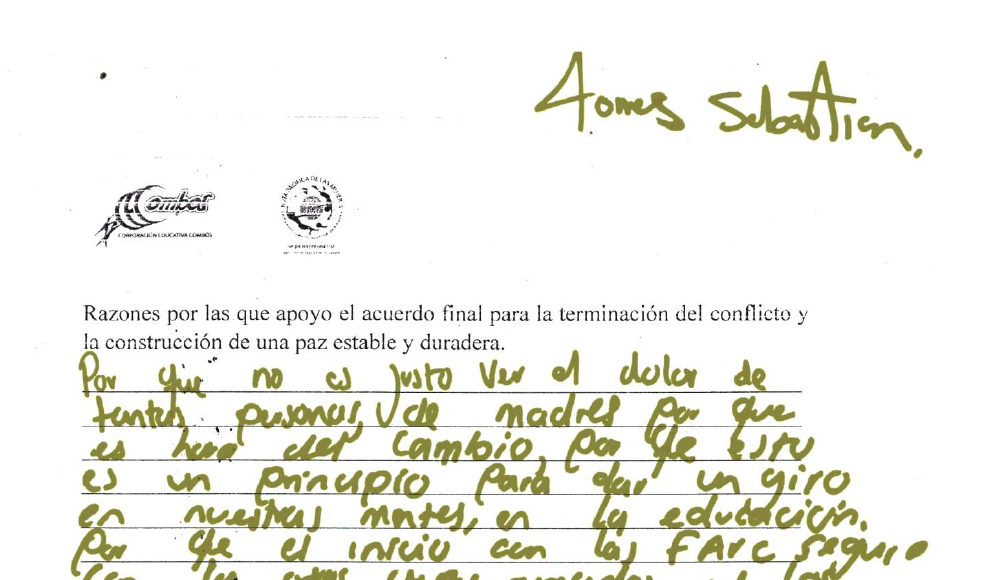 Sebastian.
ombos
CORPORACIÓN EDUCATIVA COMBOS
Razones por las que apoyo el acuerdo final para la terminación del conflicto y
la construcción de una paz estable y duradera.
Por que no es justo ver el dolor de
tantas personas, de madres por que
es hora del cambio, por que esto
es un principio para dar un giro
en nuestras mentes, en la educación.
Por que el inicio con las FArc seguiro
con las otras